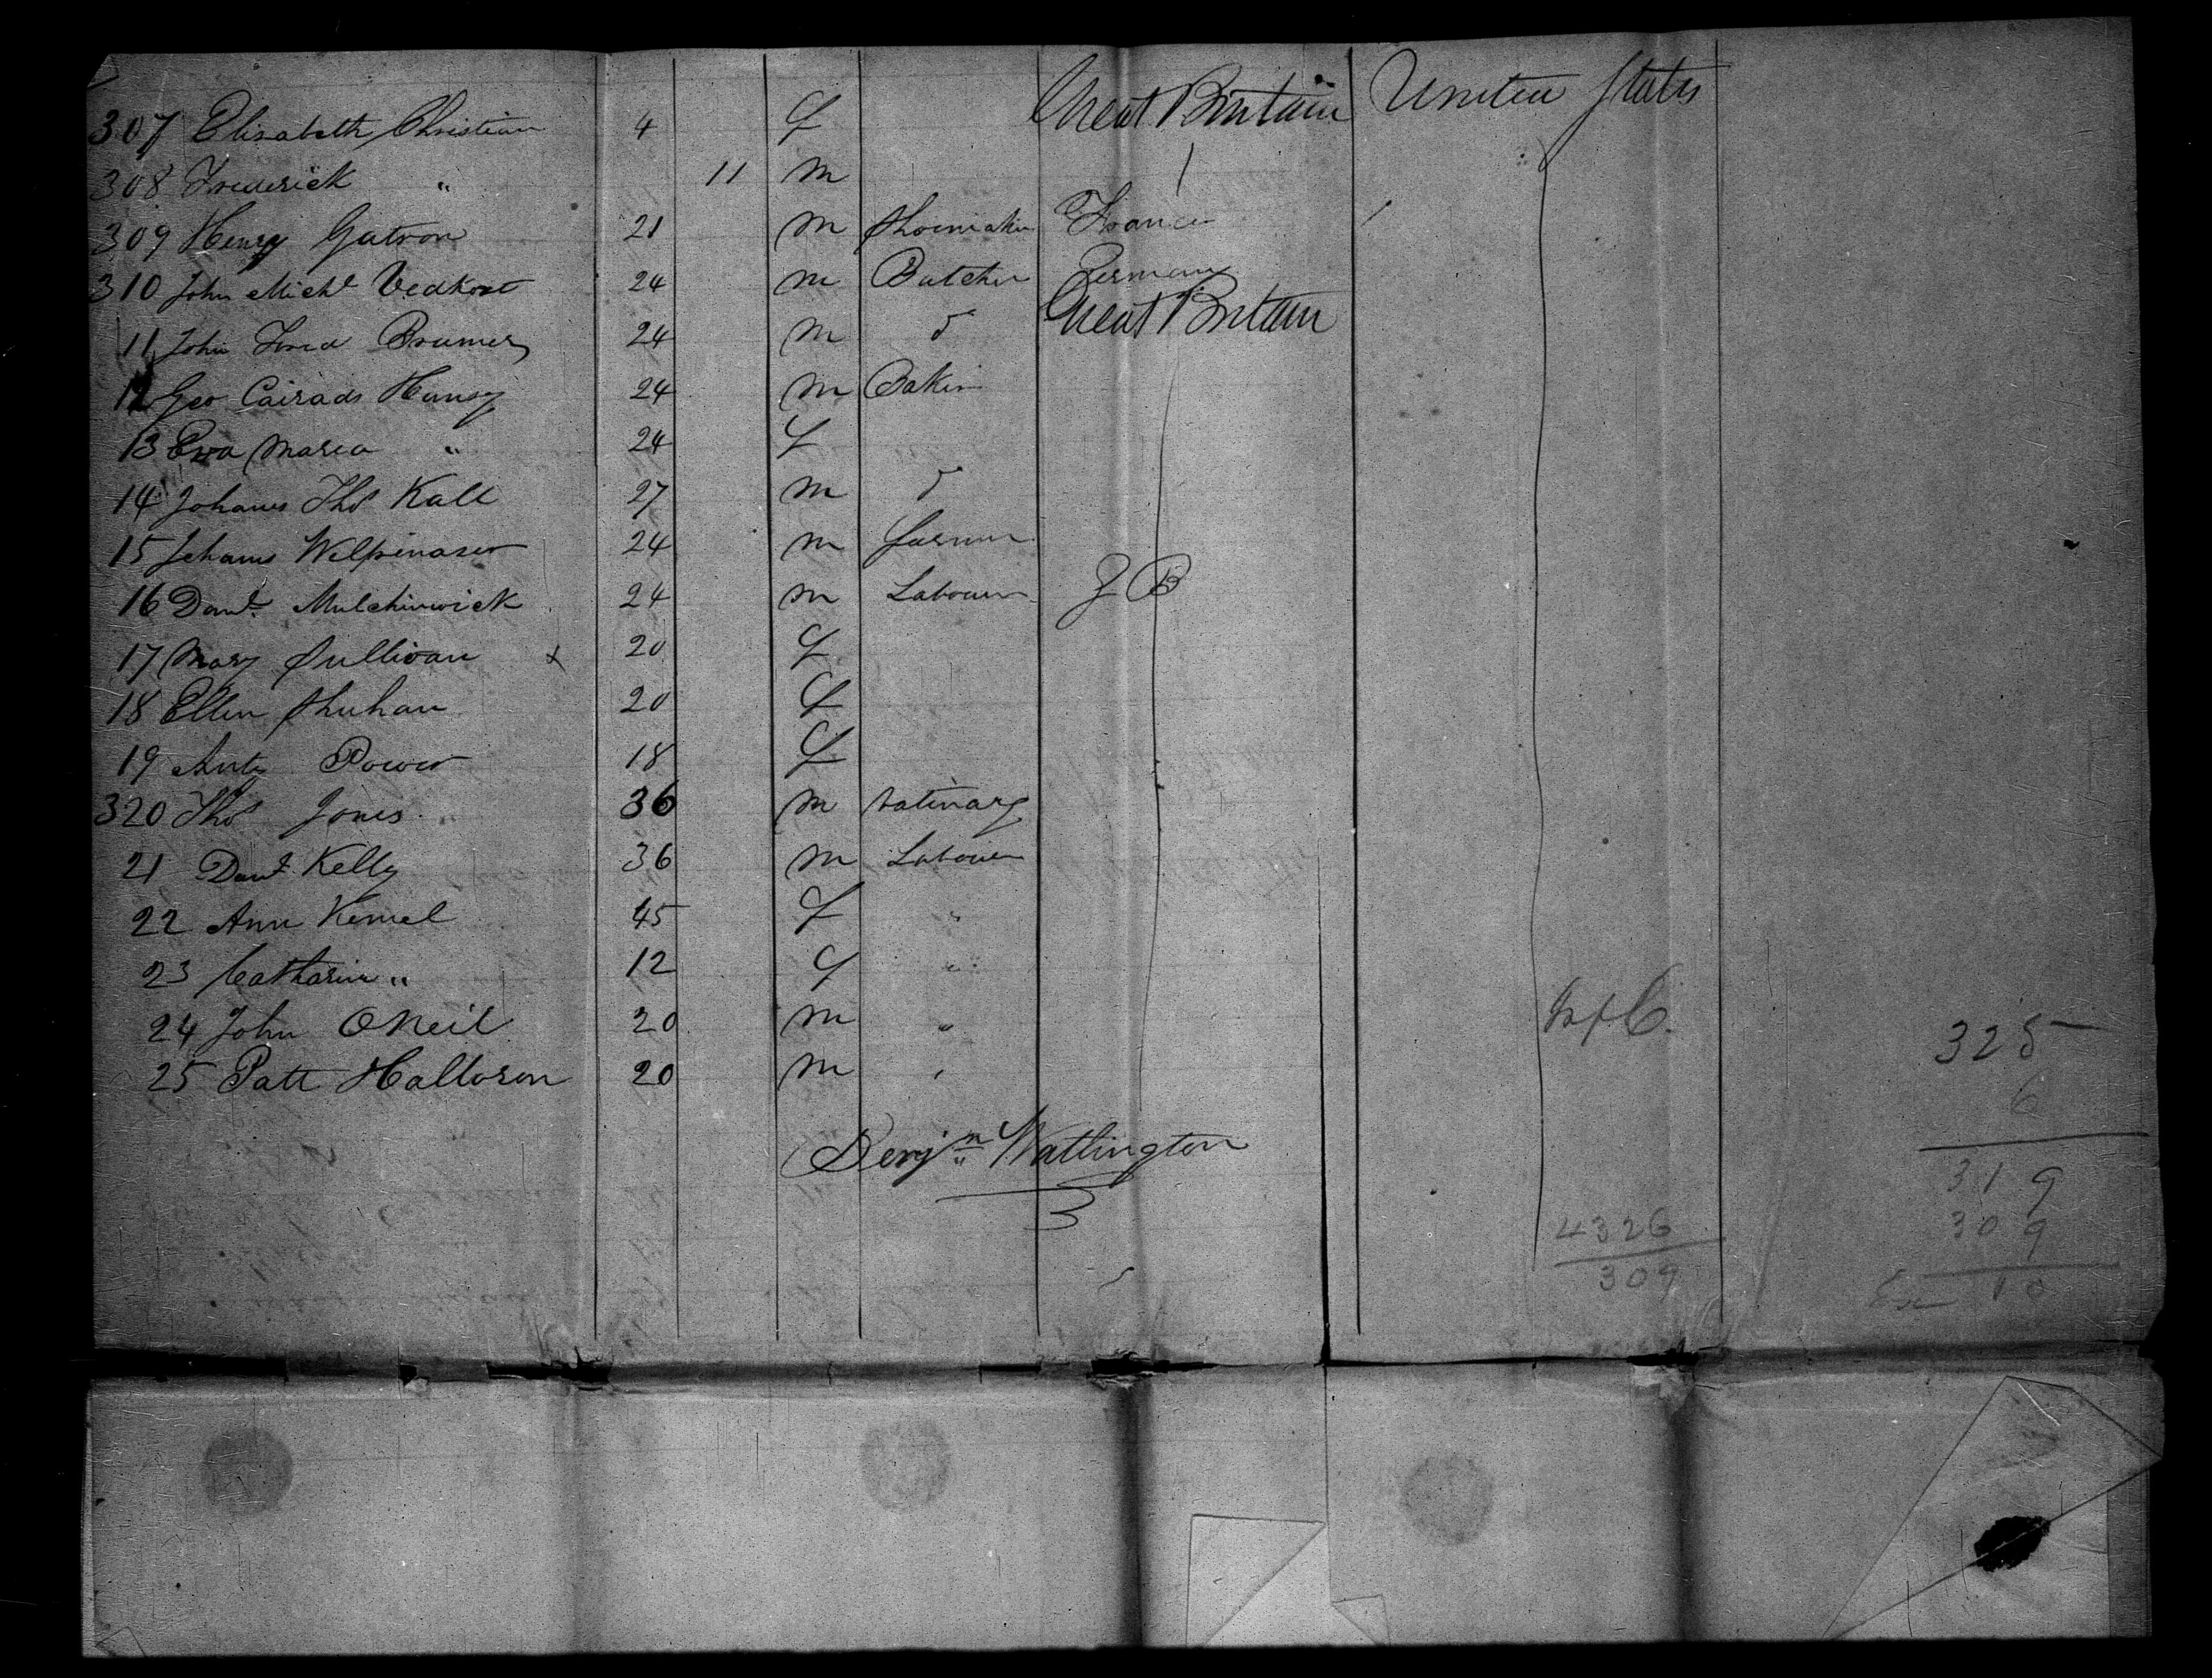 Great Britain United States
307 Elisabeth Christian 4 f
308 Frederick " 11 m
309 Henry Gatron 21 m Shoemaker France
310 John Michl Vedkost 24 m Butcher Germany
11 John Fred Brumer 24 m do Great Britain
12 Geo Cairads Hunsy 24 m Baker
13 Eva Maria " 24 f
14 Johanes Thos Kall 27 m do
15 Johanes 24 m farmer
16 Danl Mulchinwick 24 m Labourer G B
17 Mary Sullivan x 20 f
18 Ellen Shuhan 20 f
19 Power 18 f
320 Thos Jones 36 m vatinary
21 Danl Kelly 36 m Labourer
22 Ann Kemel 45 f "
23 Catharine " 12 f "
24 John ONeil 20 m "
25 Patt Halloron 20 m "
Benjn Watlington
325
6
319
309
10
4326
309